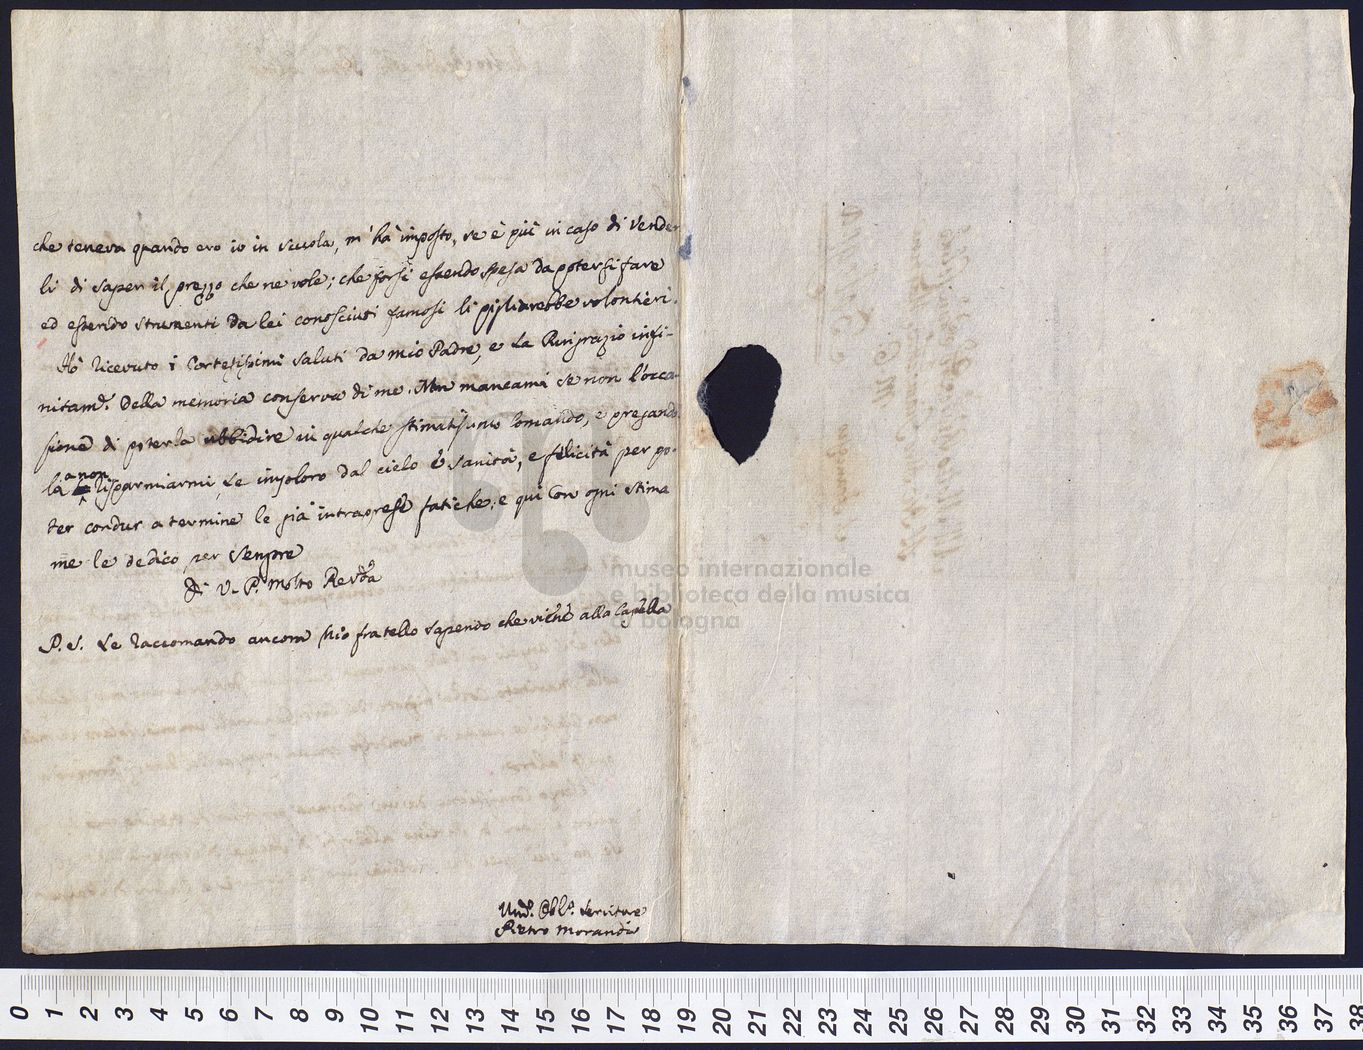 che teneva quando ero io in scuola, m'hà imposto, se è più in caso di vender
li di saper il prezzo che ne vole; che forsi essendo spesa da potersi fare
ed essendo strumenti da lei conosciuti famosi li pigliarebbe volontieri.
Hò ricevuto i cortesissimi saluti da mio Padre, e La Ringrazio infi-
nitam.e della memoria conserva di me. Non mancami se non l'occa-
sione di poterla ubbidire in qualche stimatissimo comando, e pregando
la a non risparmiarmi, Le imploro dal cielo sanità, e felicità per po-
ter condur a termine le già intraprese fatiche; e qui con ogni stima
me le dedico per sempre
Di V. P. Molto Rev.da
P. S. Le raccomando ancora mio fratello sapendo che viene alla Capella
Um.o Obl.o Servitore
Pietro Morandi
museo internazionale
e biblioteca della musica
di bologna
0 1 2 3 4 5 6 7 8 9 10 11 12 13 14 15 16 17 18 19 20 21 22 23 24 25 26 27 28 29 30 31 32 33 34 35 36 37 38